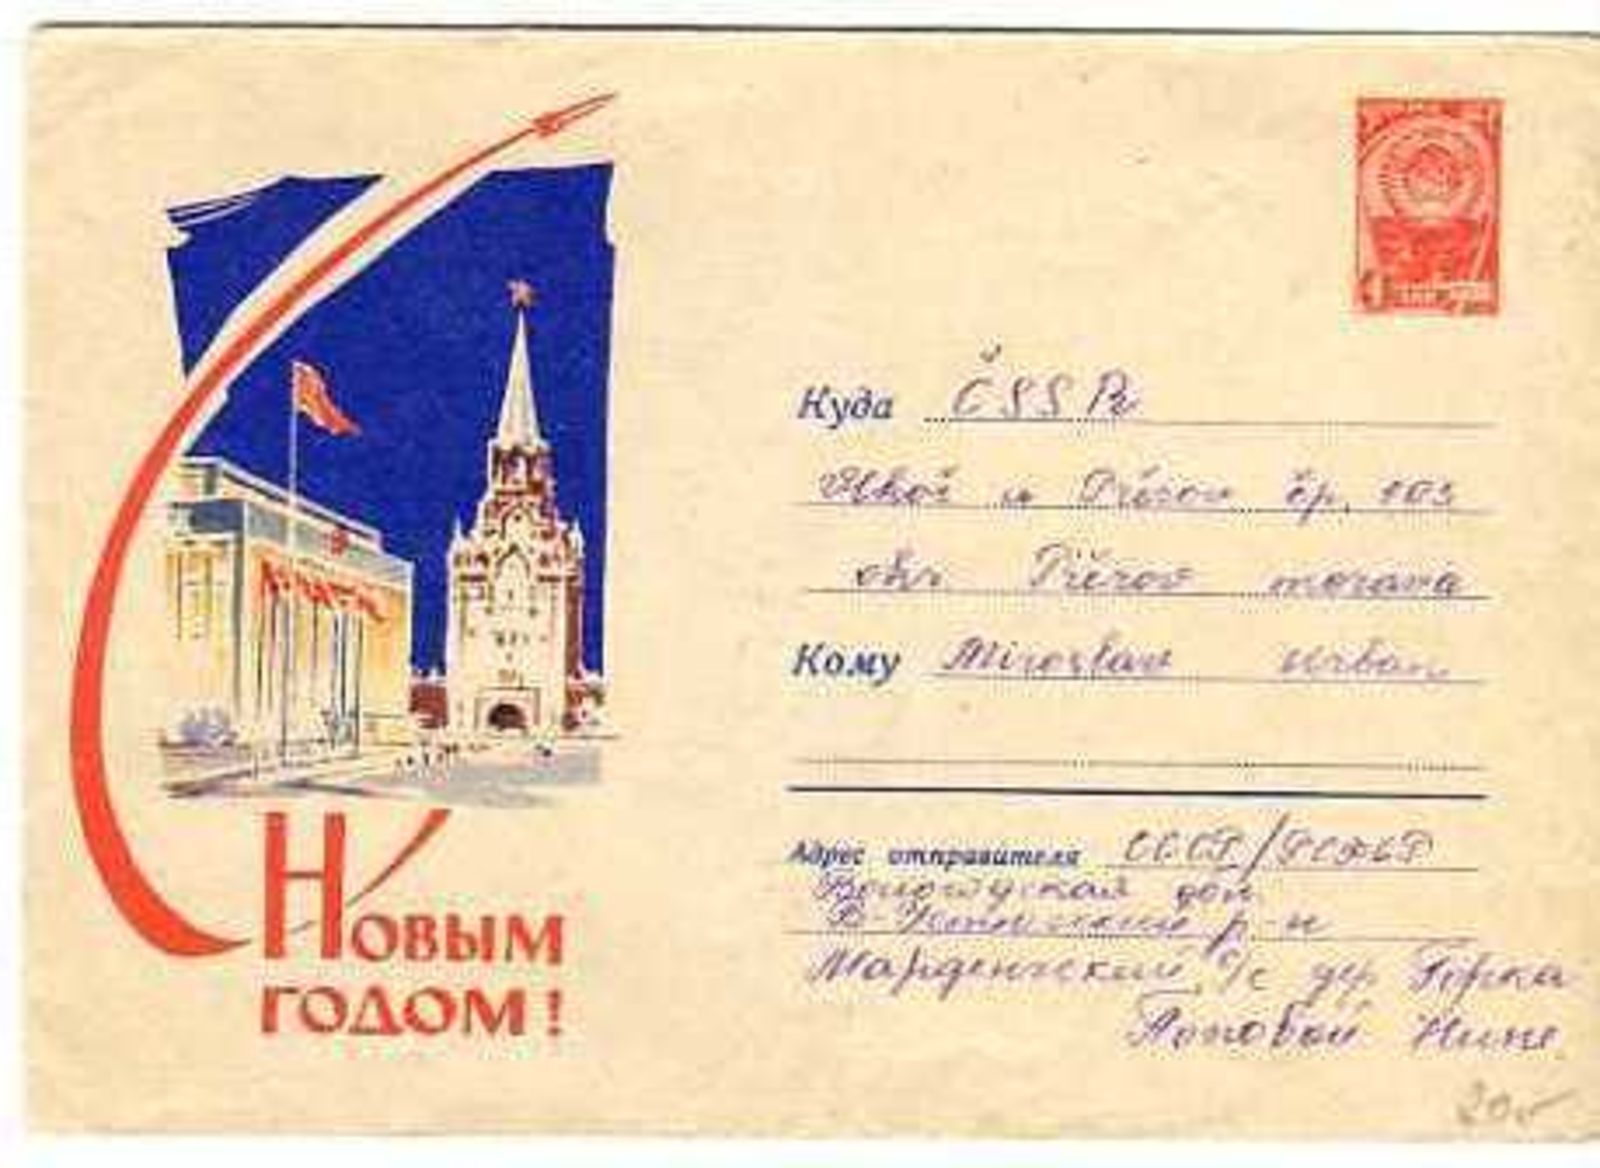 С Новым
годом!
Куда ČSSR
u Přerov čp. 103
okr Přerov morava
Кому Miroslav Urban
Адрес отправителя СССР/РСФСР
Вологодская
р-н
Марденгский с/с дер Горка
Поповой Нине